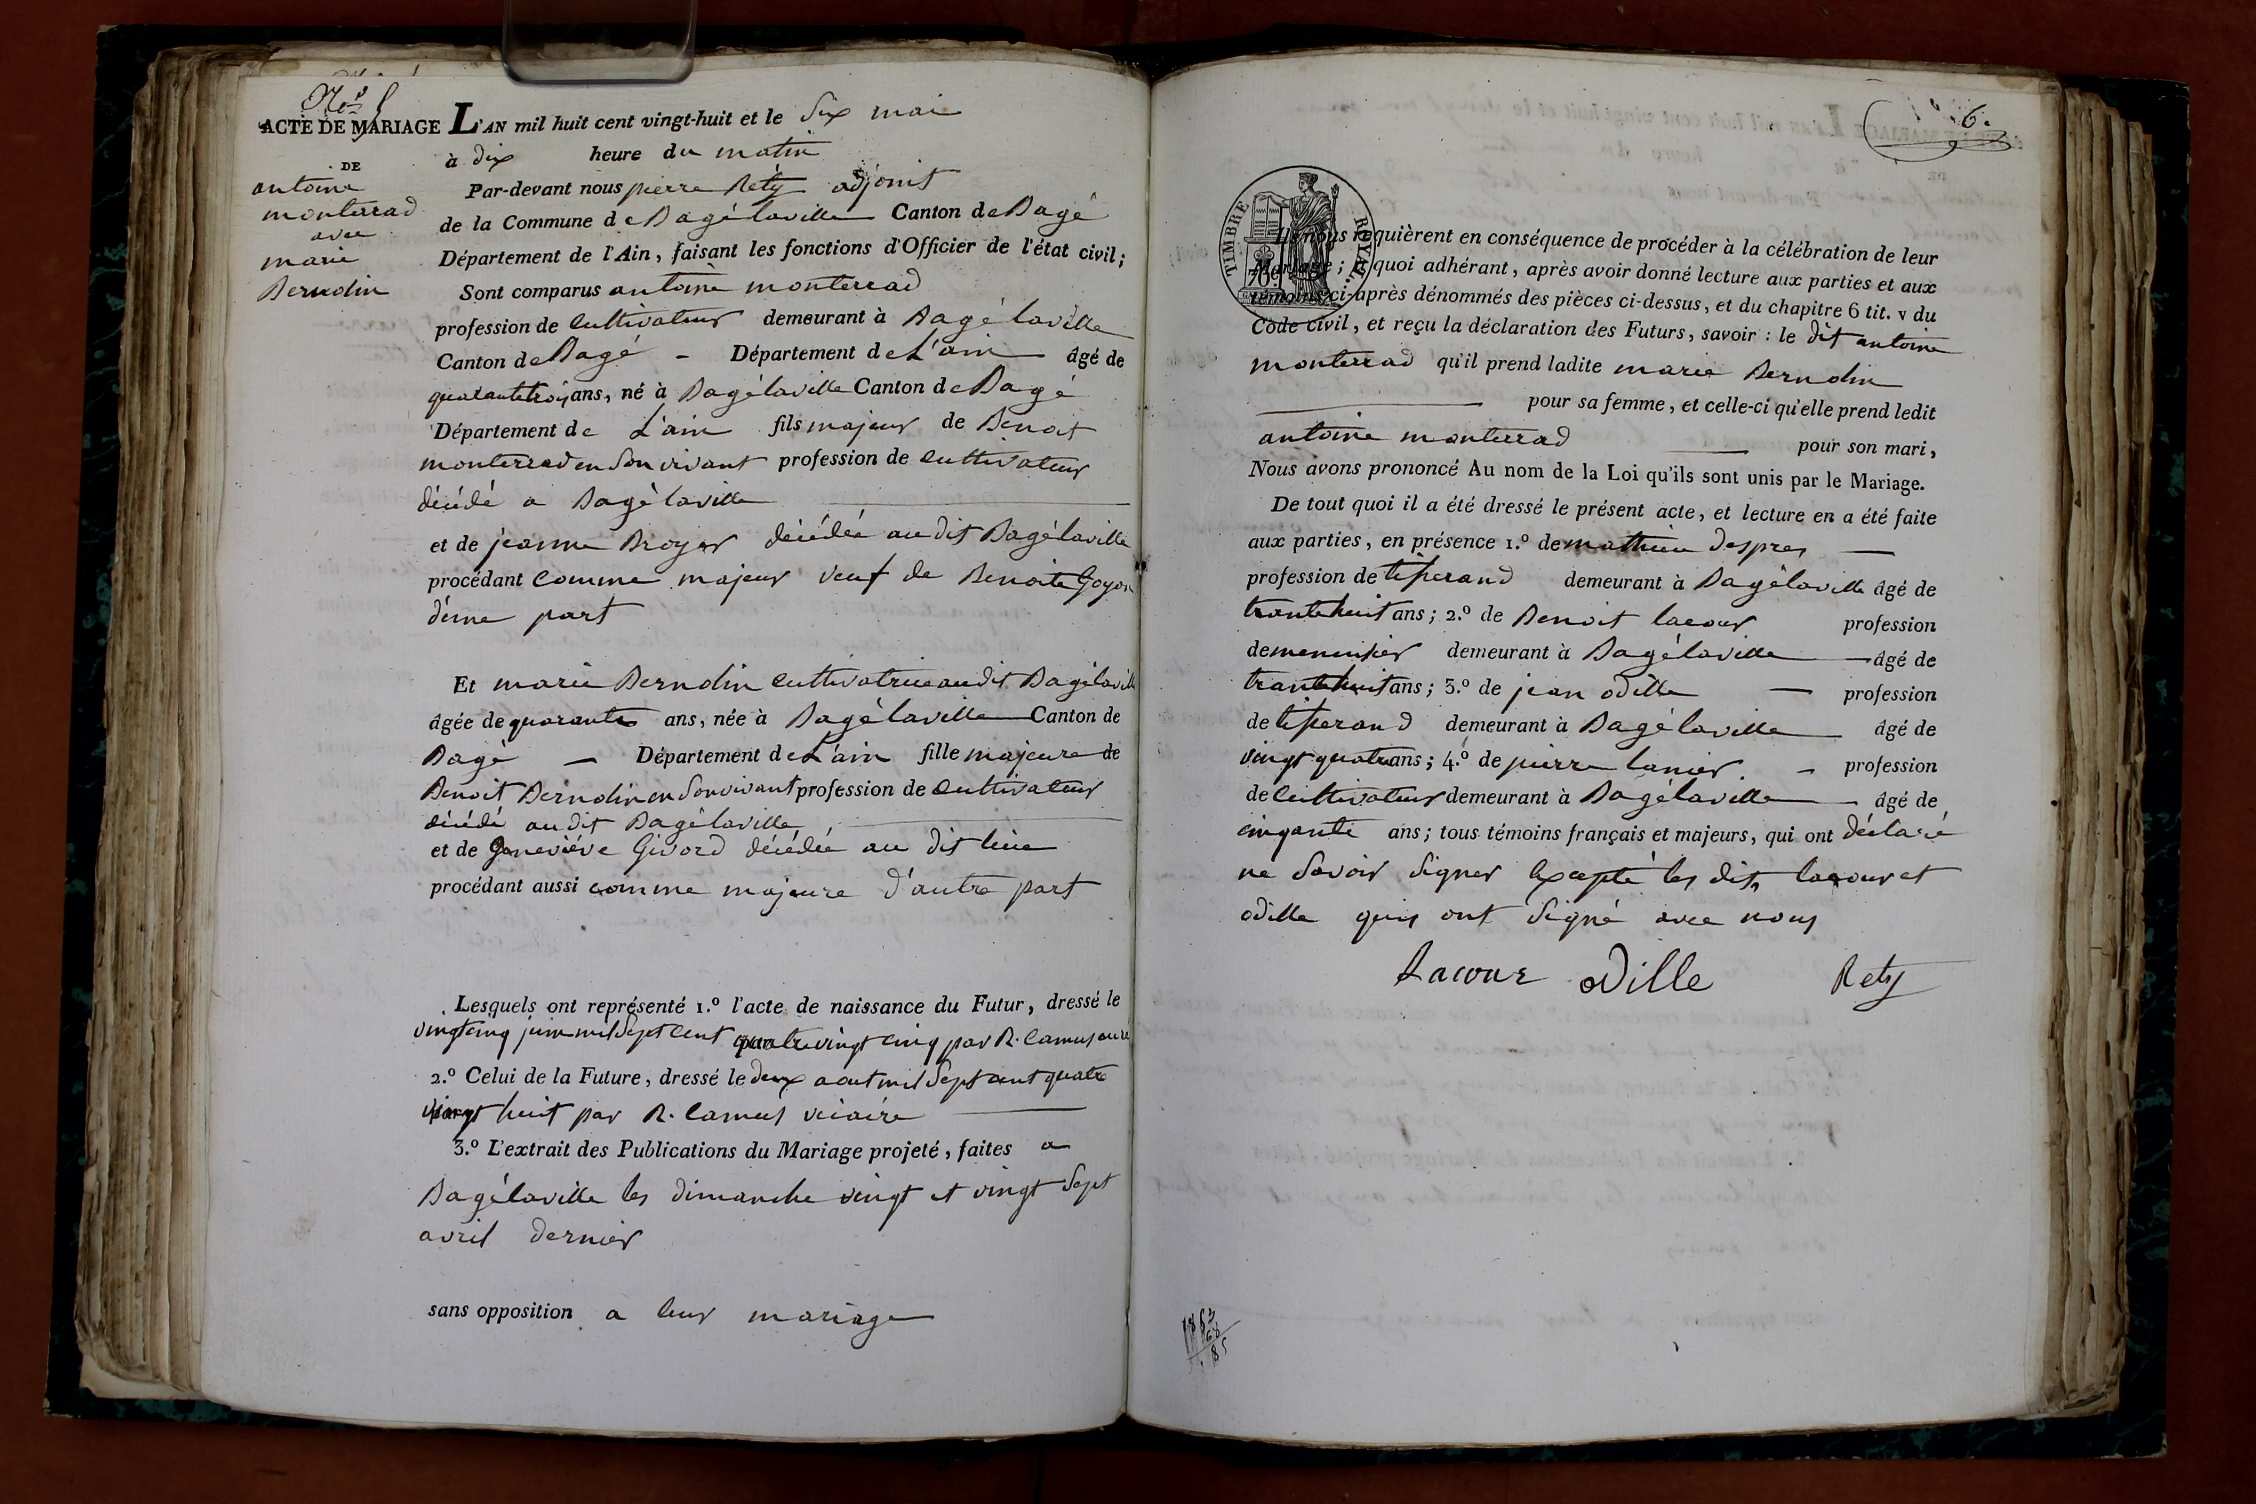 N.º 5
ACTE DE MARIAGE
DE
antoine
monterrad
avec
marie
Berndin
L'AN mil huit cent vingt-huit et le Six mai
à dix heure du matin
Par-devant nous pierre Réty adjoint
de la Commune de Bagélaville Canton de Bagé
Département de l'Ain, faisant les fonctions d'Officier de l'état civil;
Sont comparus antoine monterrad
profession de Cultivateur demeurant à Bagélaville
Canton de Bagé - Département de L'ain âgé de
quarantetrois ans, né à Bagélaville Canton de Bagé
Département de L'ain fils majeur de Benoit
monterrad en Son vivant profession de Cultivateur
décédé a Bagélaville
et de jeanne Broyer décédée au dit Bagélaville
procédant Comme majeur veuf de Benoite Goyon
d'une part
Et marie Berndin Cultivatrice audit Bagélaville
âgée de quarante ans, née à Bagélaville Canton de
Bagé - Département de L'ain fille majeure de
Benoit Berndin en Son vivant profession de Cultivateur
décédé au dit Bagélaville
et de Geneviéve Givord décédée au dit lieu
procédant aussi comme majeure d'autre part
Lesquels ont représenté 1.º l'acte de naissance du Futur, dressé le
vingtcinq juin mil Sept Cent quatrevingt cinq par R. Camus curé
2.º Celui de la Future, dressé le deux aout mil Sept cent quatre
vingt huit par R. Camus vicaire
3.º L'extrait des Publications du Mariage projeté, faites a
Bagélaville les dimanche vingt et vingt Sept
avril dernier
sans opposition a leur mariage
6.
TIMBRE ROYAL
70
Ils nous requièrent en conséquence de procéder à la célébration de leur
Mariage; à quoi adhérant, après avoir donné lecture aux parties et aux
témoins ci-après dénommés des pièces ci-dessus, et du chapitre 6 tit. v du
Code civil, et reçu la déclaration des Futurs, savoir: le dit antoine
monterrad qu'il prend ladite marie Berndin
pour sa femme, et celle-ci qu'elle prend ledit
antoine monterrad pour son mari,
Nous avons prononcé Au nom de la Loi qu'ils sont unis par le Mariage.
De tout quoi il a été dressé le présent acte, et lecture en a été faite
aux parties, en présence 1.º de mathieu Despres
profession de tisserand demeurant à Bagélaville âgé de
trantehuit ans; 2.º de Benoit lacour profession
de menuisier demeurant à Bagélaville âgé de
trantehuit ans; 3.º de jean odille profession
de tisserand demeurant à Bagélaville âgé de
vingt quatre ans; 4.º de pierre lanier - profession
de Cultivateur demeurant à Bagélaville âgé de
cinquante ans; tous témoins français et majeurs, qui ont déclaré
ne Savoir Signer Excepté les dits lacour et
odille quis ont Signé avec nous
Lacour odille Rety